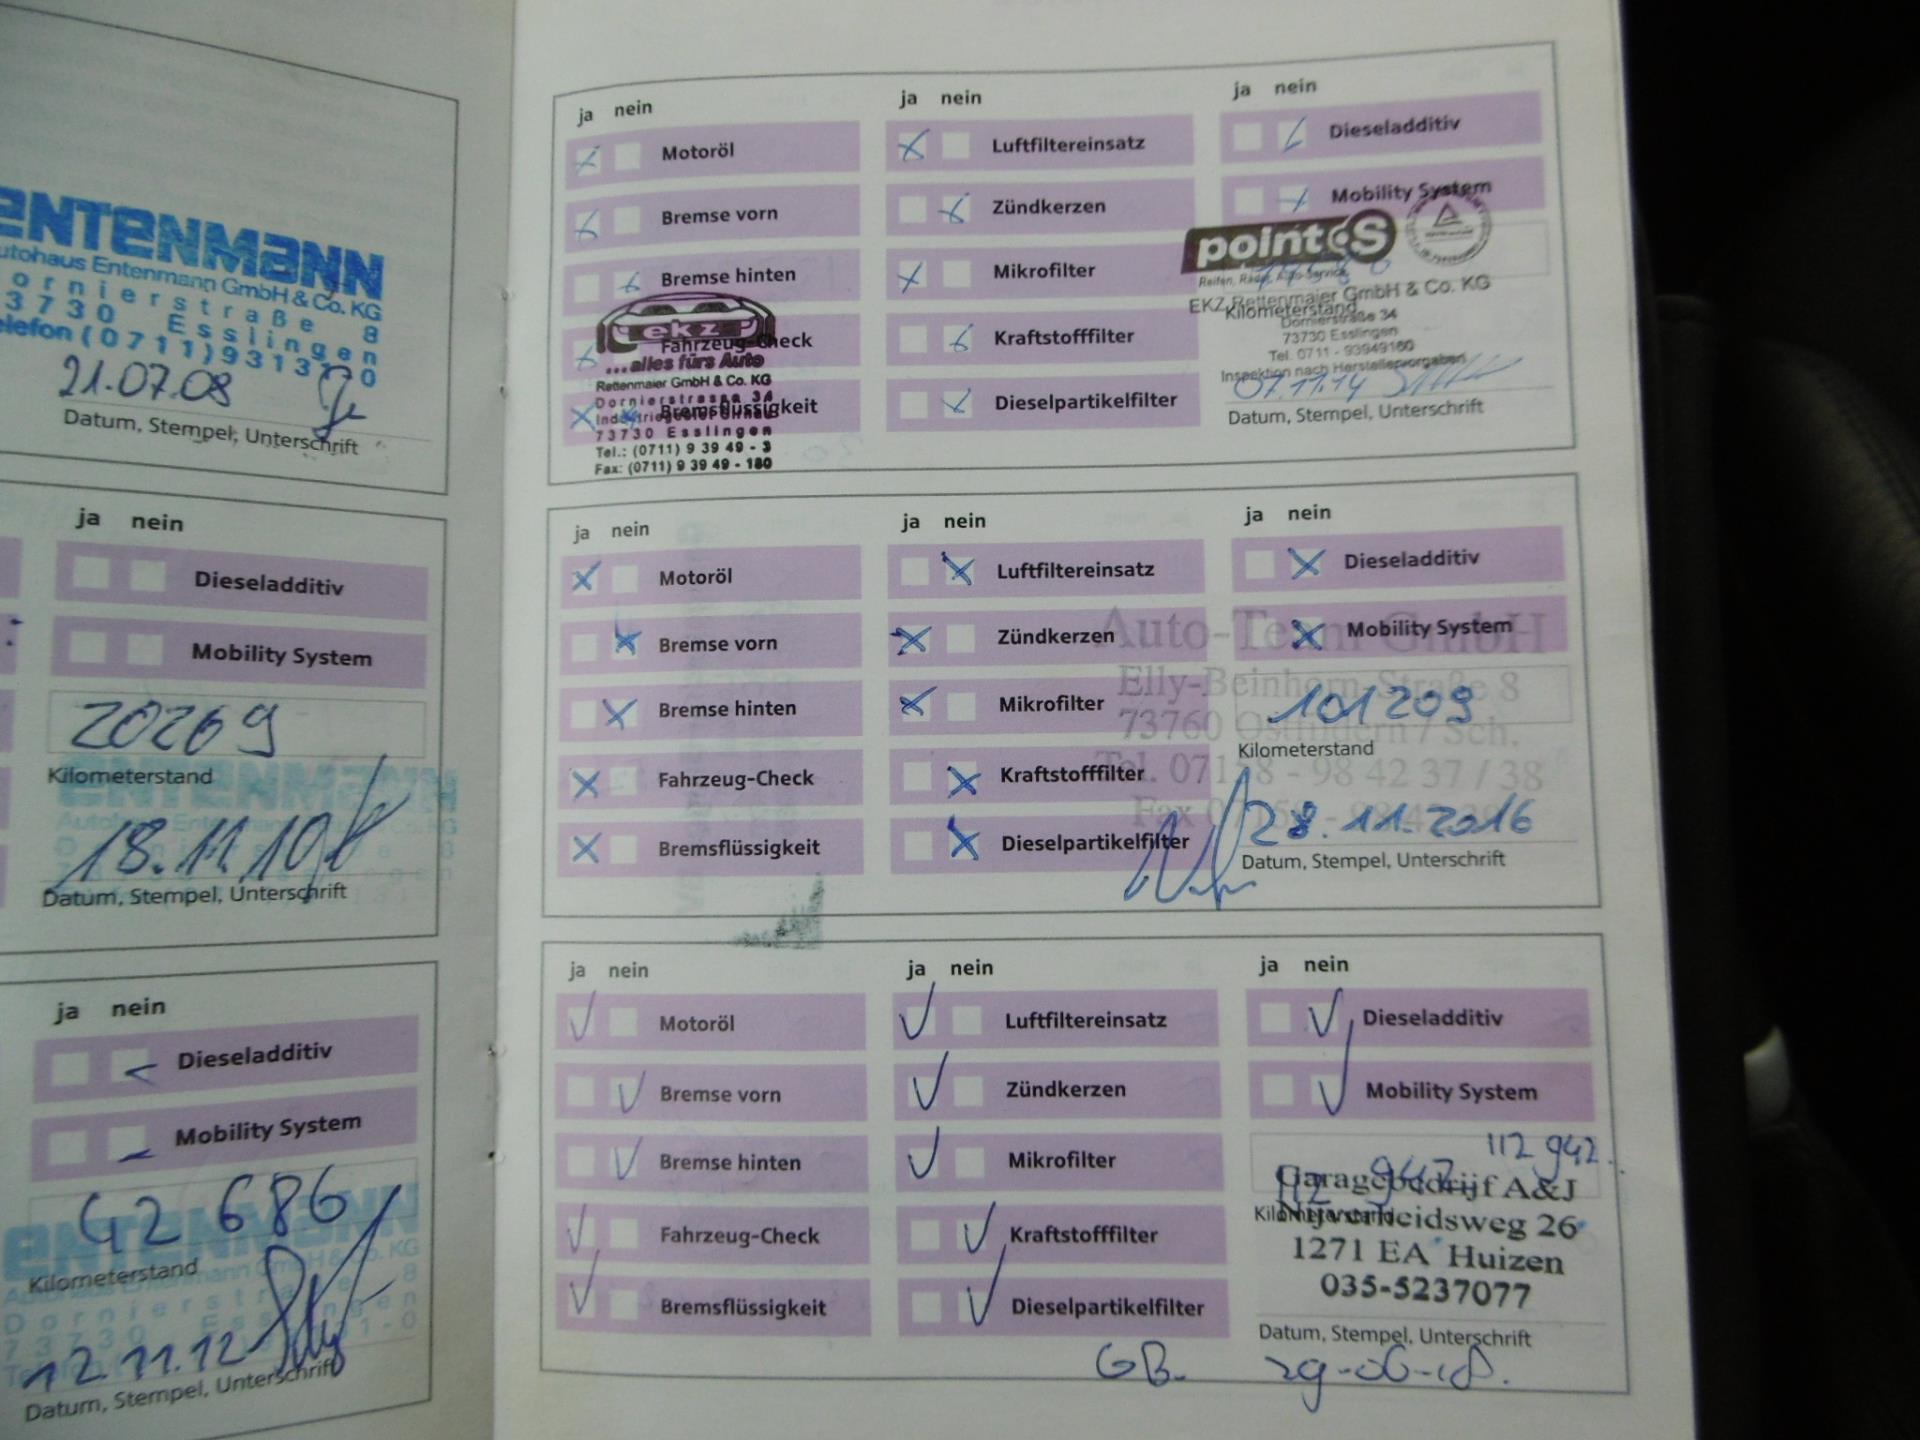 ENTENMANN
Autohaus Entenmann GmbH & Co. KG
Dornierstraße 8
73730 Esslingen
Telefon (0711) 931370
21.07.08
Datum, Stempel, Unterschrift
ja nein
Dieseladditiv
Mobility System
20269
Kilometerstand
ENTENMANN
18.11.10
Datum, Stempel, Unterschrift
ja nein
Dieseladditiv
Mobility System
42 686
ENTENMANN
Kilometerstand
12.11.12
Datum, Stempel, Unterschrift
ja nein ja nein ja nein
Motoröl Luftfiltereinsatz Dieseladditiv
Bremse vorn Zündkerzen Mobility System
Bremse hinten Mikrofilter
Fahrzeug-Check Kraftstofffilter
Bremsflüssigkeit Dieselpartikelfilter
ekz
...alles fürs Auto
Rettenmaier GmbH & Co. KG
Dornierstrasse 34
73730 Esslingen
Tel.: (0711) 9 39 49 - 3
Fax: (0711) 9 39 49 - 180
point S
Reifen, Räder, Auto-Service
EKZ Rettenmaier GmbH & Co. KG
Kilometerstand
Dornierstraße 34
73730 Esslingen
Tel. 0711 - 93949180
Inspektion nach Herstellervorgaben
07.11.14
Datum, Stempel, Unterschrift
ja nein ja nein ja nein
Motoröl Luftfiltereinsatz Dieseladditiv
Bremse vorn Zündkerzen Mobility System
Bremse hinten Mikrofilter
Fahrzeug-Check Kraftstofffilter
Bremsflüssigkeit Dieselpartikelfilter
Auto-Team GmbH
Elly-Beinhorn-Straße 8
101209
73760 Ostfildern / Sch.
Kilometerstand
Tel. 07158 - 98 42 37 / 38
28.11.2016
Datum, Stempel, Unterschrift
ja nein ja nein ja nein
Motoröl Luftfiltereinsatz Dieseladditiv
Bremse vorn Zündkerzen Mobility System
Bremse hinten Mikrofilter
Fahrzeug-Check Kraftstofffilter
Bremsflüssigkeit Dieselpartikelfilter
112 942
112 942
Garagebedrijf A&J
Kilometerstand
Nijverheidsweg 26
1271 EA Huizen
035-5237077
Datum, Stempel, Unterschrift
GB. 29-06-18.